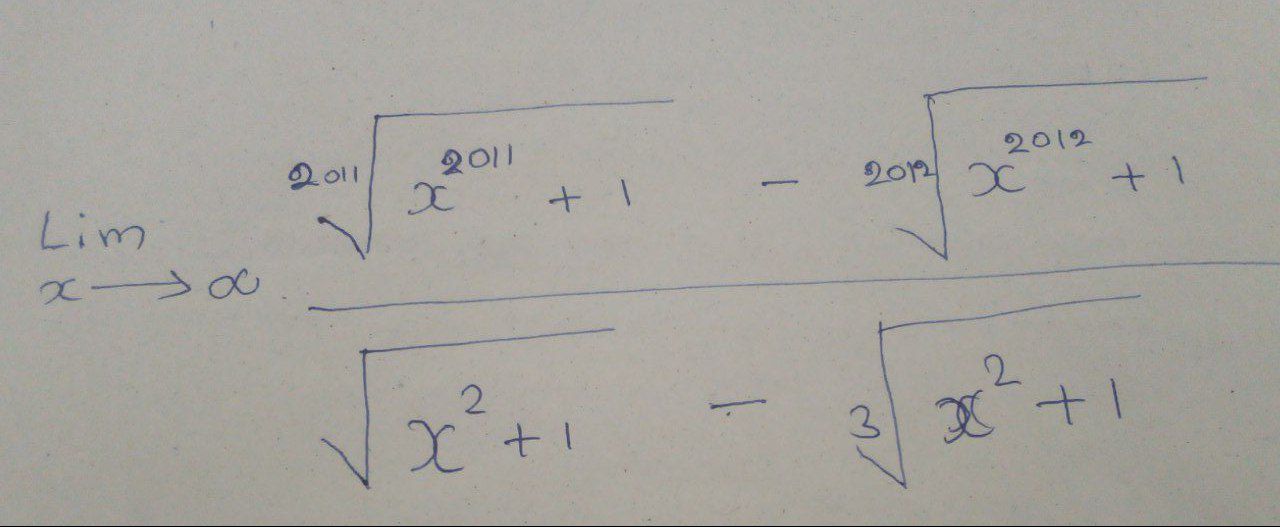 Lim x→∞ \frac{\sqrt[2011]{x^{2011} + 1} - \sqrt[2012]{x^{2012} + 1}}{\sqrt{x^2 + 1} - \sqrt[3]{x^2 + 1}}